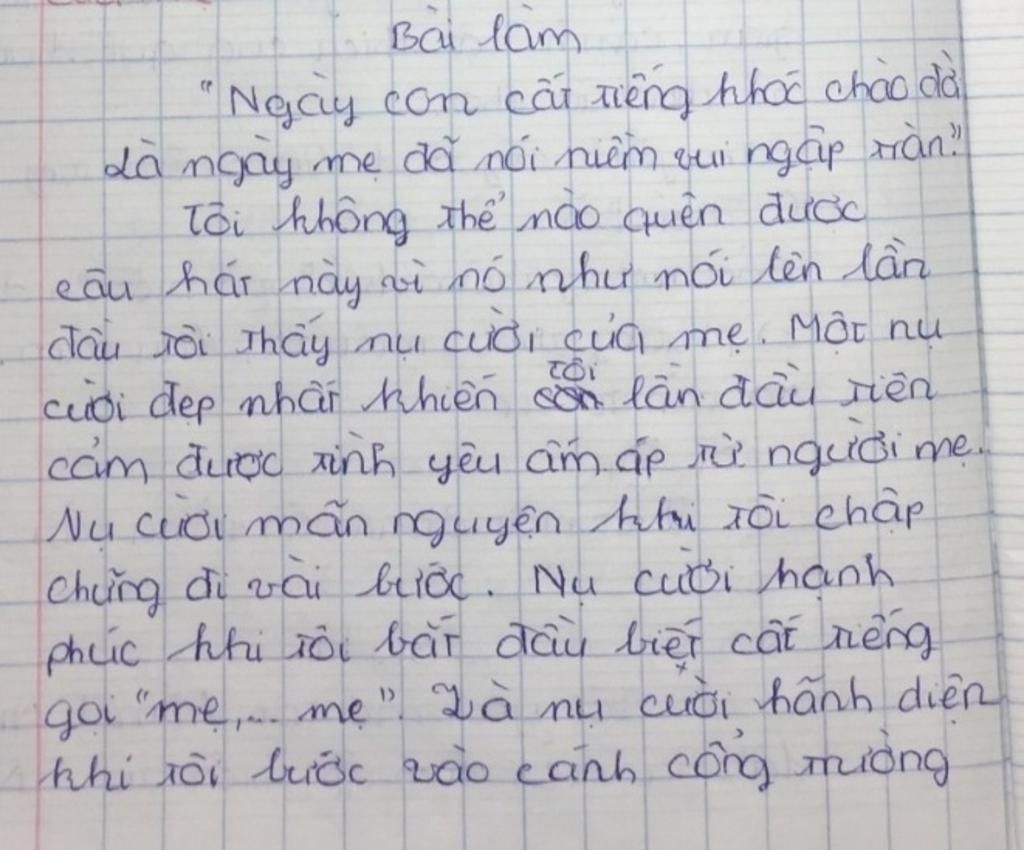 Bài làm
"Ngày con cất tiếng khóc chào đời
Là ngày mẹ đã nói niềm vui ngập tràn."
Tôi không thể nào quên được
câu hát này vì nó như nói lên lần
đầu tôi thấy nụ cười của mẹ. Một nụ
cười đẹp nhất khiến tôi lần đầu tiên
cảm được tình yêu ấm áp từ người mẹ.
Nụ cười mãn nguyện khi tôi chập
chững đi vài bước. Nụ cười hạnh
phúc khi tôi bắt đầu biết cất tiếng
gọi "mẹ,... mẹ". Là nụ cười hãnh diện
khi tôi bước vào cánh cổng trường